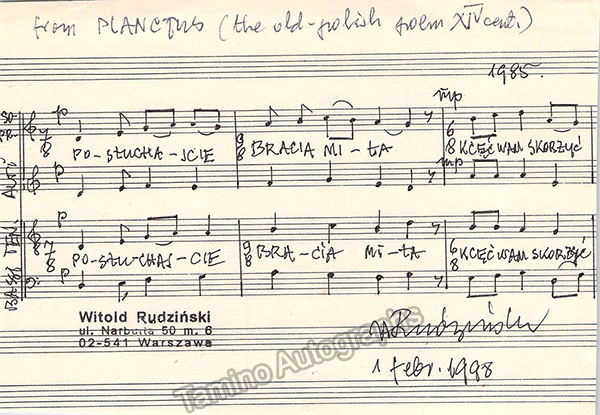 from PLANCTUS (the old-polish poem XIV cent.)
1985.
SO-
PR.
p
mp
7
8
9
8
6
8
PO-SŁUCHA-JCIE BRACIA MI-ŁA KCĘĆ WAM SKORŻYĆ
ALTI
p
mp
TEN.
p
7
8
9
8
6
8
PO-SŁUCHAJ-CIE BRA-CIA MI-ŁA KCĘĆ WAM SKORŻYĆ
BASSI
p
Witold Rudziński
ul. Narbutta 50 m. 6
02-541 Warszawa
WRudziński
1 febr. 1998
Tamino Autographs